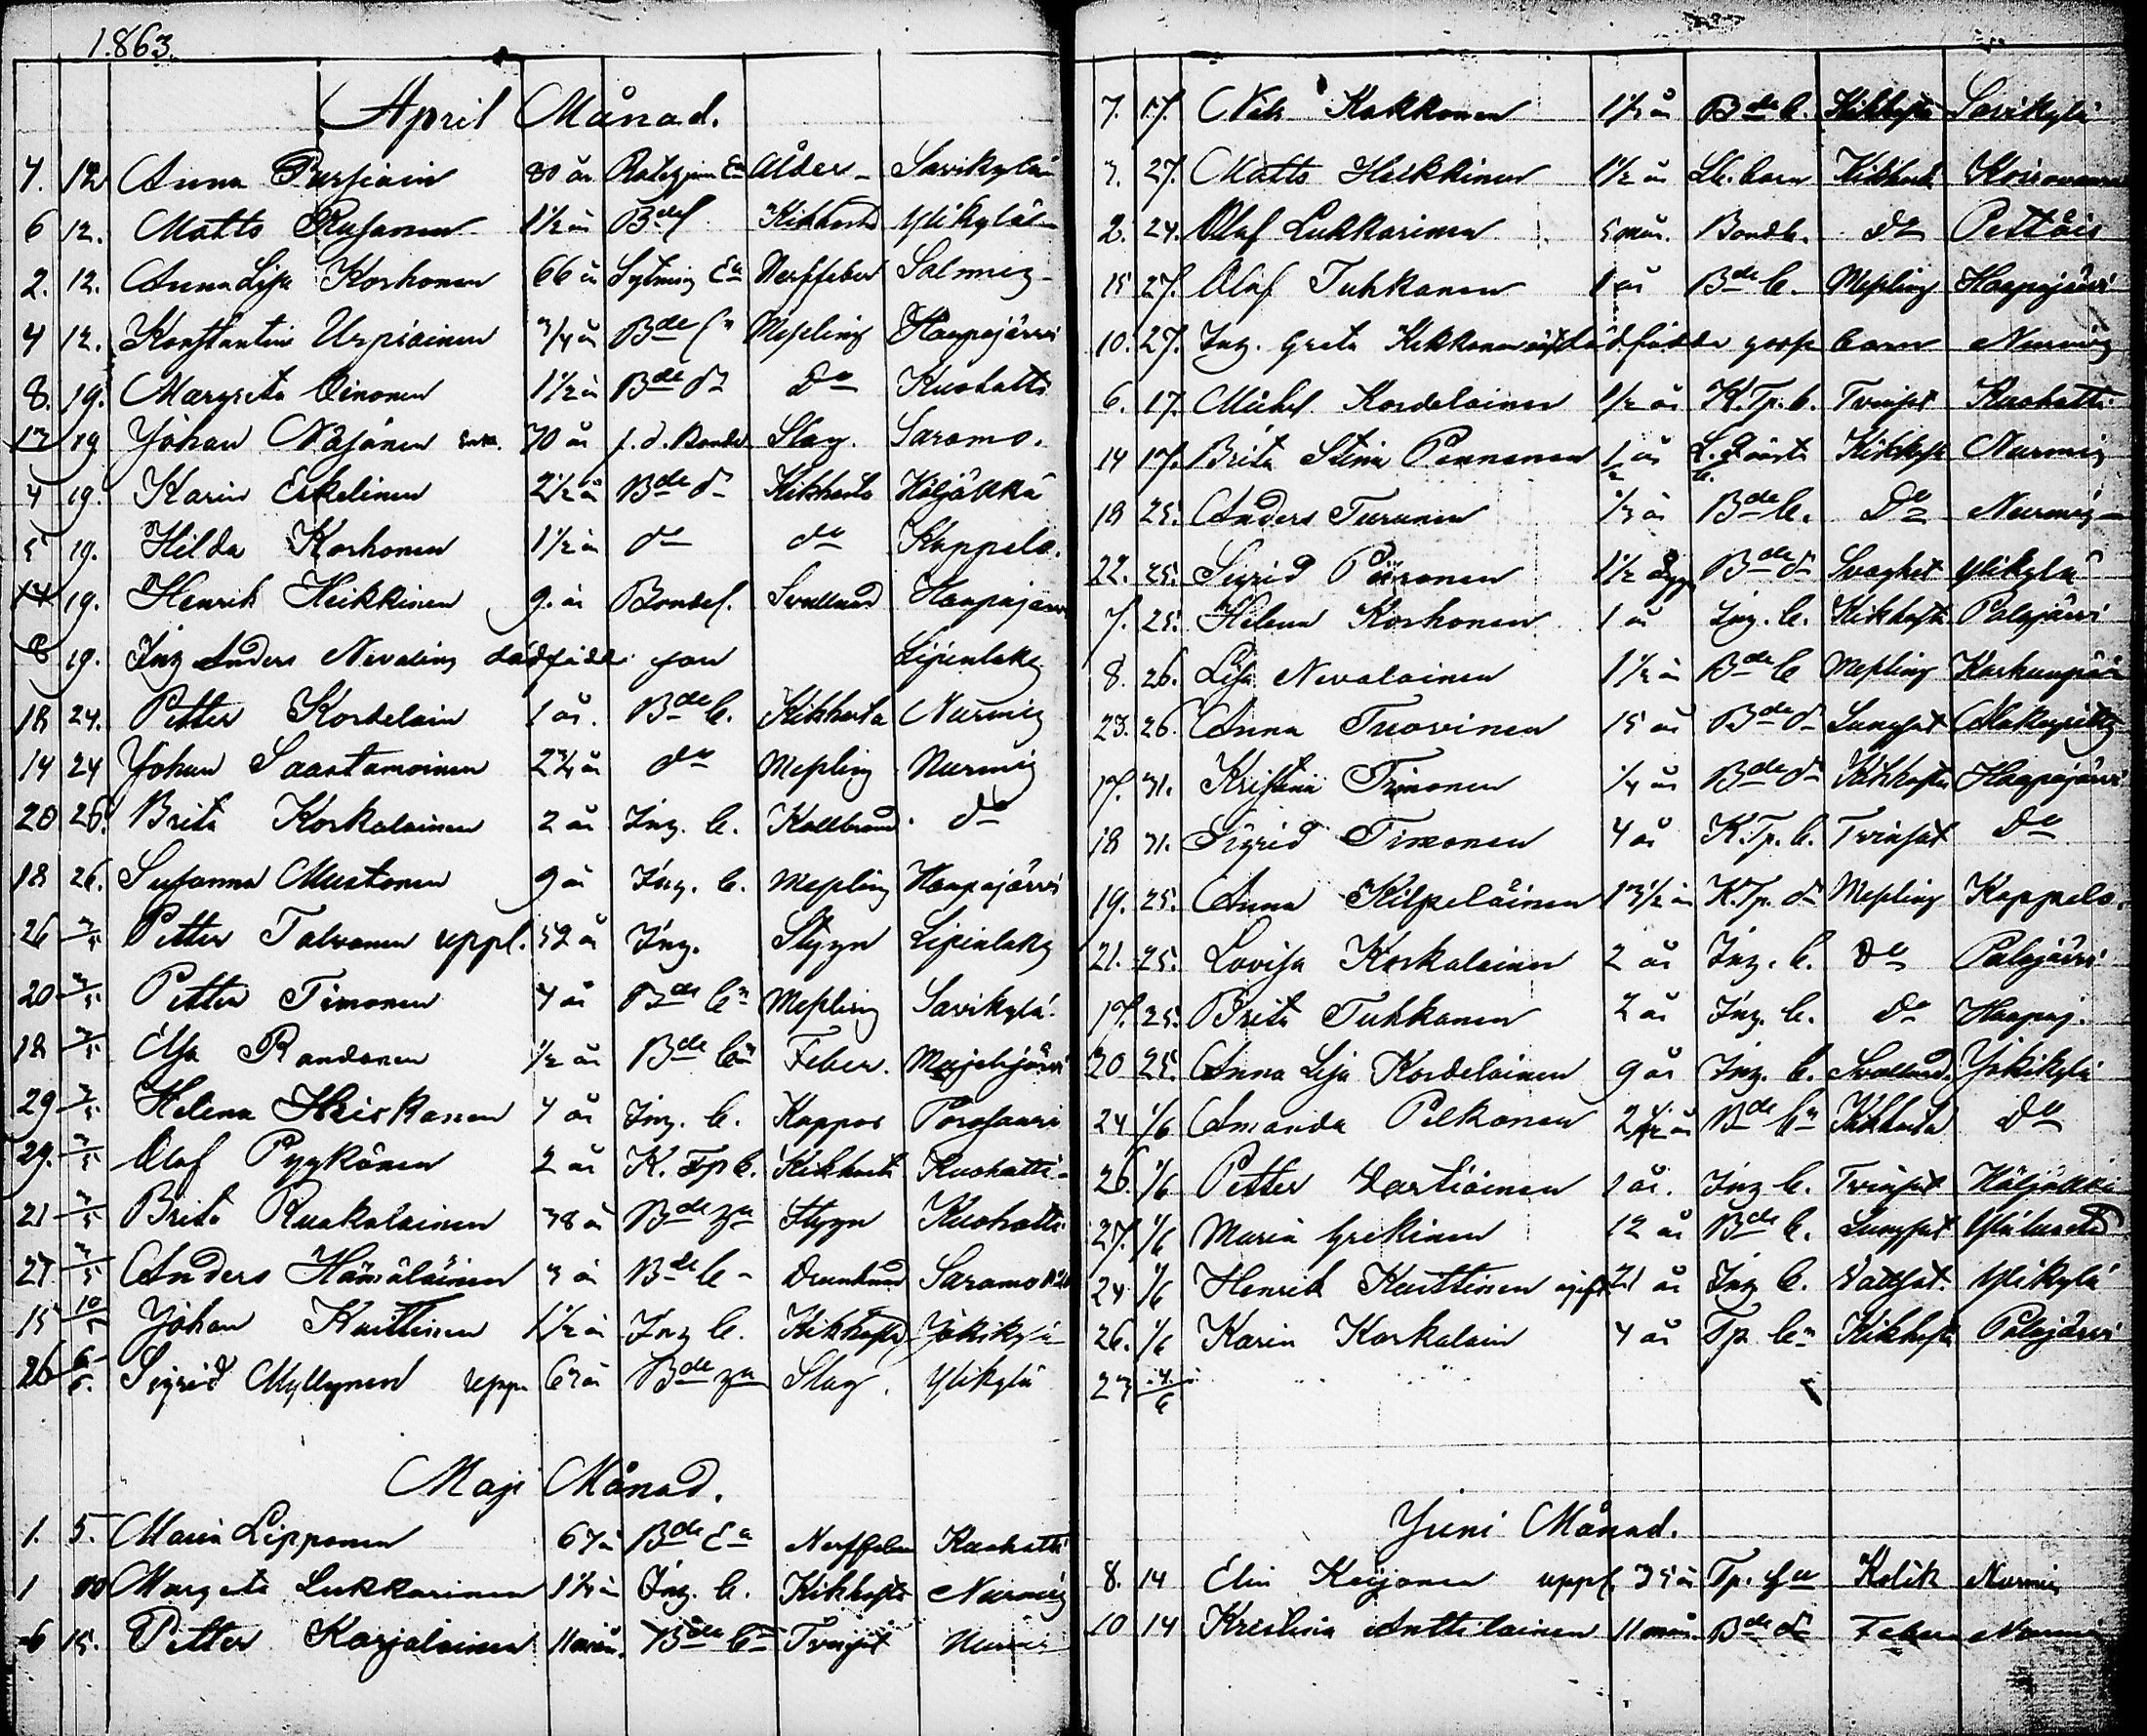 1863.
April Månad.
7. 12 Anna Pursiain 80 år Ålder Savikylä
6 12. Matts Rusanen 1 1/2 år Bde Kikhosta Ylikylä
2. 12. Anna Lisa Korhonen 66 år Sytning Ea Nerffeber Salmis
4 12. Konstantin Urpiainen 3/4 år Bde Messling Haapajärvi
8. 19. Margreta Oinonen 1 1/2 år Bde d Do Kuohatti
17 19 Johan Näsänen Enk. 70 år f.d. Bonde Slag. Saramo.
4 19. Karin Eskelinen 2 1/2 år Bde d Kikhosta Höljäkkä
5 19. Hilda Korhonen 1 1/2 år do do Kappelo.
14 19. Henrik Heikkinen 9. år Bondes. Svullnad Haapajärvi
8 19. Ing Anders Nevalains dödfödde son Lipinlaks
18 24. Petter Kordelain 1 år. Bde b. Kikhosta Nurmis
14 24 Johan Saastamoinen 2 3/4 år do Messling Nurmis
20 26. Brita Korkalainen 2 år Ing. b. Kallbrand do
18 26. Susanna Mustonen 9 år Ing. b. Messling Haapajärvi
26 3/5 Petter Talvonen uppl. 52 år Ing. Styng Lipinlaks
20 3/5 Petter Timonen 4 år Bde bn Messling Savikylä.
18 3/5 Elsa Randonen 1/2 år Bde bn Feber. Mujejärvi
29 3/5 Helena Heiskanen 4 år Ing. b. Koppor Porosaari
29. 3/5 Olof Pyykönen 2 år K. Tp b. Kikhosta Kuohatti
21 3/5 Brita Ruokolainen 38 år Bde Styng Kuohatti
27 3/5 Anders Hämäläinen 3 år Bde b Drunknad Saramo
15 10/5 Johan Kuittinen 1 1/2 år Ing b. Kikhosta Jokikylä
26 6/5. Sigrid Myllynen uppn 63 år Bde Slag. Ylikylä
Maji Månad.
1. 5. Maria Lipponen 67 år Bde Ea Nerffeber Kuohatti
1 10 Margeta Lukkarinen 1 1/4 år Ing. b. Kikhosta Nurmis
6 15. Petter Karjalainen 11 mån. Bde bn Tvinsot Nurmis
7. 17. Nils Kokkonen 1 1/2 år Bde b. Kikhosta Savikylä
3. 27. Matts Heikkinen 1 1/2 år Lk. barn Kikhosta Koirovaara
2. 24. Olof Lukkarinen 5 mån. Bondb. do Pettäis
15 27. Olof Tuhkanen 1 år Bde b. Messling Haapajärvi
10. 27. Ing. Greta Kekkonen dödfödde gosse barn Nurmis
6. 17. Michel Kordelainen 1/2 år K. Tp. b. Tvinsot Kuohatti.
14 17. Brita Stina Pennanen 1 år Kikhosta Nurmis
18 25. Anders Turunen 1/3 år Bde b. Do Nurmis
22. 25. Sigrid Piironen 1 1/2 dygn Bde d Svaghet Ylikylä
7. 25. Helena Korhonen 1 år Ing. b. Kikhosta Palojärvi
8. 26. Lisa Nevalainen 1 1/2 år Bde b Messling
23. 26. Anna Tuovinen 15 år Bde d Lungsot
17. 31. Kristina Timonen 1/4 år Bde d Kikhosta Haapajärvi
18 31. Sigrid Timonen 4 år K. Tp. b. Tvinsot Do
19. 25. Anna Kilpeläinen K. Tp. d Messling Kappelo.
21. 25. Lovisa Korkalainen 2 år Ing. b. do Palojärvi
17. 25. Brita Tuhkanen 2 år Ing. b. do Haapaj.
20 25. Anna Lisa Kordelainen 9 år Ing. b. Svullnad Jokikylä
24 1/6 Amanda Pelkonen Bde bn Kikhosta Do
26. 1/6 Petter Vartiainen 1 år. Ing b. Tvinsot Höljäkkä
27. 1/6 Maria Grekinen 12 år Bde b. Lungsot
24 1/6 Henrik Kuittinen ogift 21 år Ing b. Vattsot. Ylikylä
26. 1/6 Karin Korkalain 4 år Tp. bn Kikhosta Palojärvi
23 4/6
Juni Månad.
8. 14 Elin Keijonen uppl 35 år Tp. Kolik Nurmis
10 14 Kristina Anttilainen 11 mån. Bde d Feber Nurmis